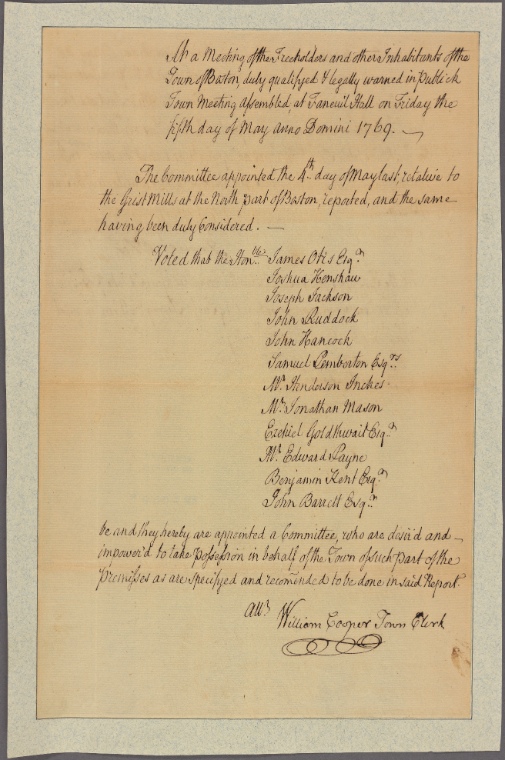 At a Meeting of the Freeholders and other Inhabitants of the
Town of Boston, duly qualifyed & legally warned in publick
Town Meeting Assembled, at Faneuil Hall on Friday the
fifth day of May Anno Domini 1769.
The Committee appointed the 4th day of May last, relative to
the Grist Mills at the North part of Boston, reported, and the same
having been duly Considered.
Voted that the Honble James Otis Esqr
Joshua Henshaw
Joseph Jackson
John Ruddock
John Hancock
Samuel Pemberton Esqrs
Mr Henderson Inches
Mr Jonathan Mason
Ezekiel Goldthwait Esqr
Mr Edward Payne
Benjamin Kent Esqr
John Barrett Esqr
be and they hereby are appointed a Committee, who are desir'd and
impower'd to take possession in behalf of the Town of such part of the
premisses as are specifyed and recominded to be done in said Report
Attr William Cooper Town Clerk